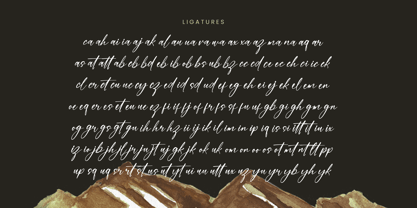 LIGATURES
ca ah ai ia aj ak al an ua va wa ax xa az ma na aq ar
as at att ab eb bd eb ib ob bs ub bz cc cd cu ec ch ci ic ck
cl cr ct cu uc cy cz ed id sd ud ef eg eh ei ej ek el em en
oe eq er es et eu ue ez fi if fj of fr fs sf fu uf gb gi gh gm gn
og gr gs gt gu ih hr hz ii ij ik il im in ip iq is si itt it in ix
iz io jb jh jl jr ju jt uj gk jk ok uk om on oo os ot mt nt tt pp
up sq uq sr rt st us ut yt ui un utt ux uz yu yr yb yh yk